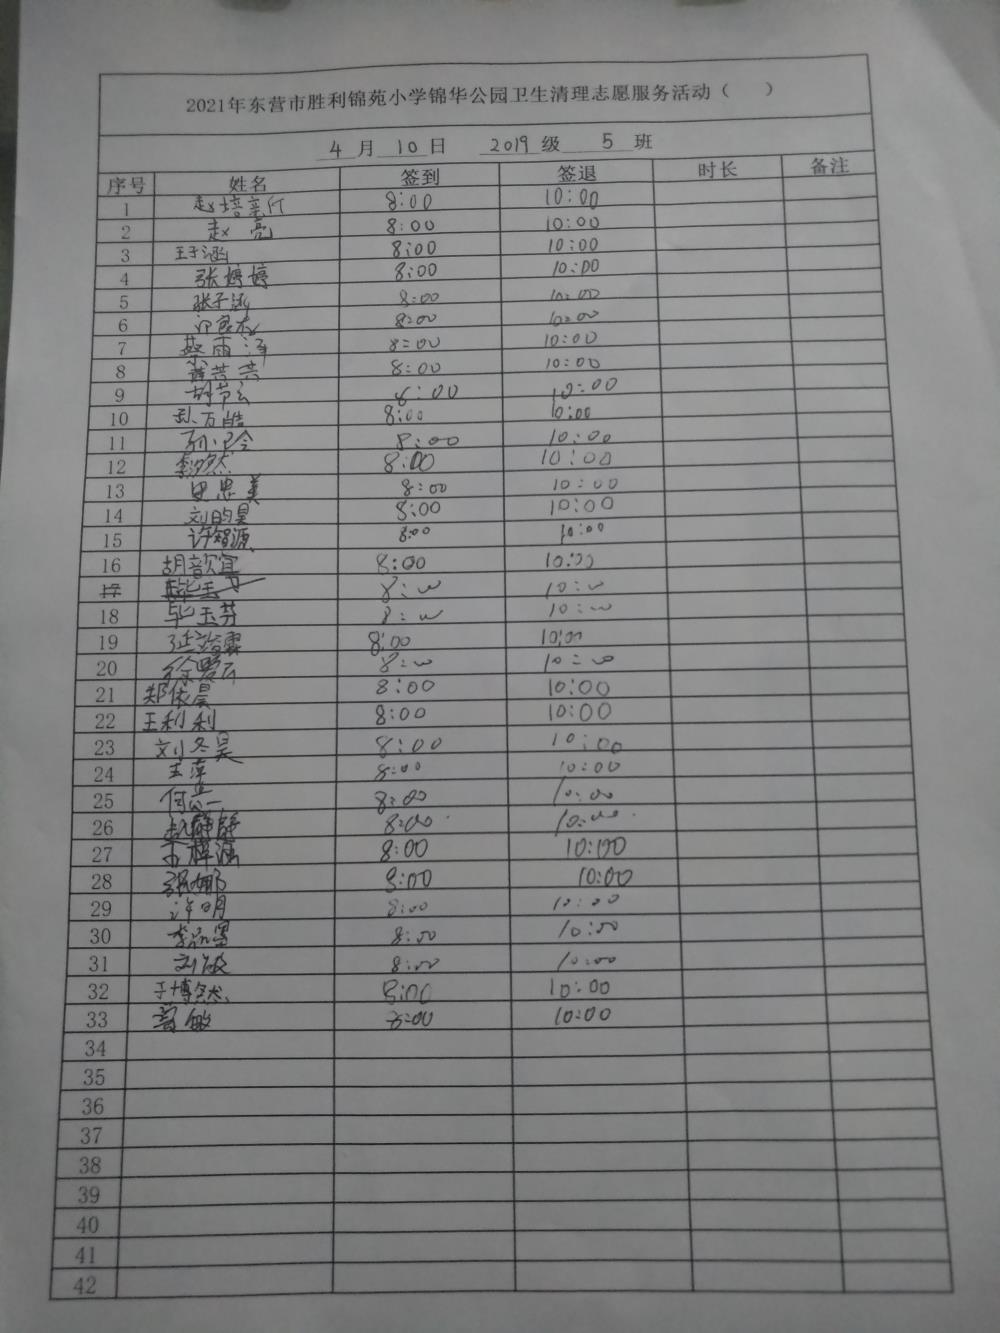 2021年东营市胜利锦苑小学锦华公园卫生清理志愿服务活动（ ）
4 月 10 日 2019 级 5 班
序号 姓名 签到 签退 时长 备注
1 赵培 8:00 10:00
2 赵亮 8:00 10:00
3 王子涵 8:00 10:00
4 张婷婷 8:00 10:00
5 张子涵 8:00 10:00
6 8:00 10:00
7 蔡雨泽 8:00 10:00
8 8:00 10:00
9 胡 8:00 10:00
10 孙万皓 8:00 10:00
11 8:00 10:00
12 李汐然 8:00 10:00
13 史忠美 8:00 10:00
14 刘昀昊 8:00 10:00
15 许智源 8:00 10:00
16 胡歆宜 8:00 10:00
17 毕玉 8:00 10:00
18 毕玉芬 8:00 10:00
19 8:00 10:00
20 徐 8:00 10:00
21 郑依晨 8:00 10:00
22 王利利 8:00 10:00
23 刘冬昊 8:00 10:00
24 王萍 8:00 10:00
25 何 8:00 10:00
26 赵静静 8:00 10:00
27 王梓涵 8:00 10:00
28 张娜 8:00 10:00
29 许明 8:00 10:00
30 李 8:00 10:00
31 刘敏 8:00 10:00
32 于博然 8:00 10:00
33 敏 8:00 10:00
34
35
36
37
38
39
40
41
42